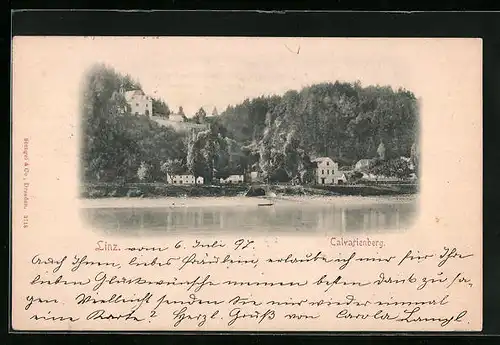 Stengel & Co., Dresden.
Linz. vom 6. Juli 97.
Calvarienberg.
Auch Ihnen, liebes Fräulein erlaube ich mir für Ihre
lieben Glückwünsche meinen besten Dank zu sa-
gen. Vielleicht senden Sie mir wieder einmal
eine Karte? Herzl. Gruß von Carola